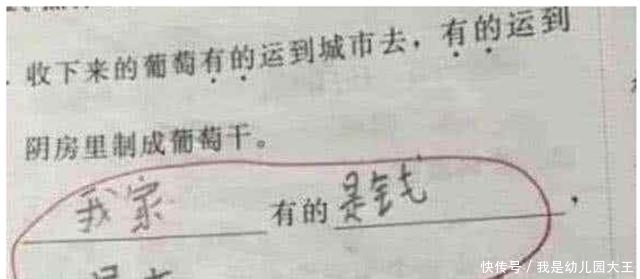 收下来的葡萄有的运到城市去，有的运到
阴房里制成葡萄干。
我家有的是钱，
快传号／我是幼儿园大王